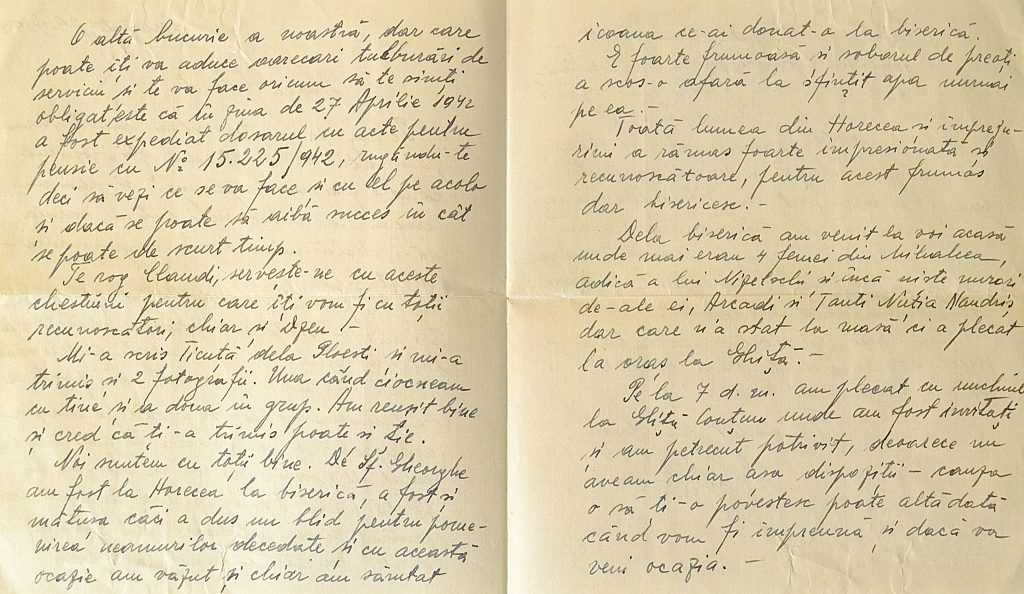 O altă bucurie a noastră, dar care
poate îți va aduce oarecari turburări de
serviciu și te va face oricum să te simți
obligat, este că în ziua de 27 Aprilie 1942
a fost expediat dosarul cu acte pentru
pensie cu № 15.225/942, rugându-te
deci să vezi ce se va face și cu el pe acolo
și dacă se poate să aibă succes în cât
se poate de scurt timp.
Te rog Claudi, servește-ne cu aceste
chestiuni pentru care îți vom fi cu toții
recunoscători, chiar și
Mi-a scris Ticuță dela Ploești și mi-a
trimis și 2 fotografii. Una când ciocneam
cu tine și a doua în grup. Am reușit bine
și cred că ți-a trimis poate și ție.
Noi suntem cu toții bine. De Sf. Gheorghe
am fost la Horecea la biserică, a fost și
mătușa căci a dus un blid pentru pome-
nirea neamurilor decedate și cu această
ocazie am văzut și chiar am sărutat
icoana ce-ai donat-o la biserică.
E foarte frumoasă și soborul de preoți
a scos-o afară la sfințit apa numai
pe ea. -
Toată lumea din Horecea și împreju-
rimi a rămas foarte impresionată și
recunoscătoare, pentru acest frumos
dar bisericesc. -
Dela biserică am venit la voi acasă
unde mai erau 4 femei din Mihalcea,
adică a lui și încă niște nurori
de-ale ei, Arcadi și Tanti Nandriș,
dar care n'a stat la masă ci a plecat
la oraș la Ghiță. -
Pe la 7 d. m. am plecat cu unchiul
la Ghiță unde am fost invitați
și am petrecut potrivit, deoarece nu
aveam chiar așa dispoziții - cauza
o să ți-o povestesc poate altădată
când vom fi împreună și dacă va
veni ocazia. -